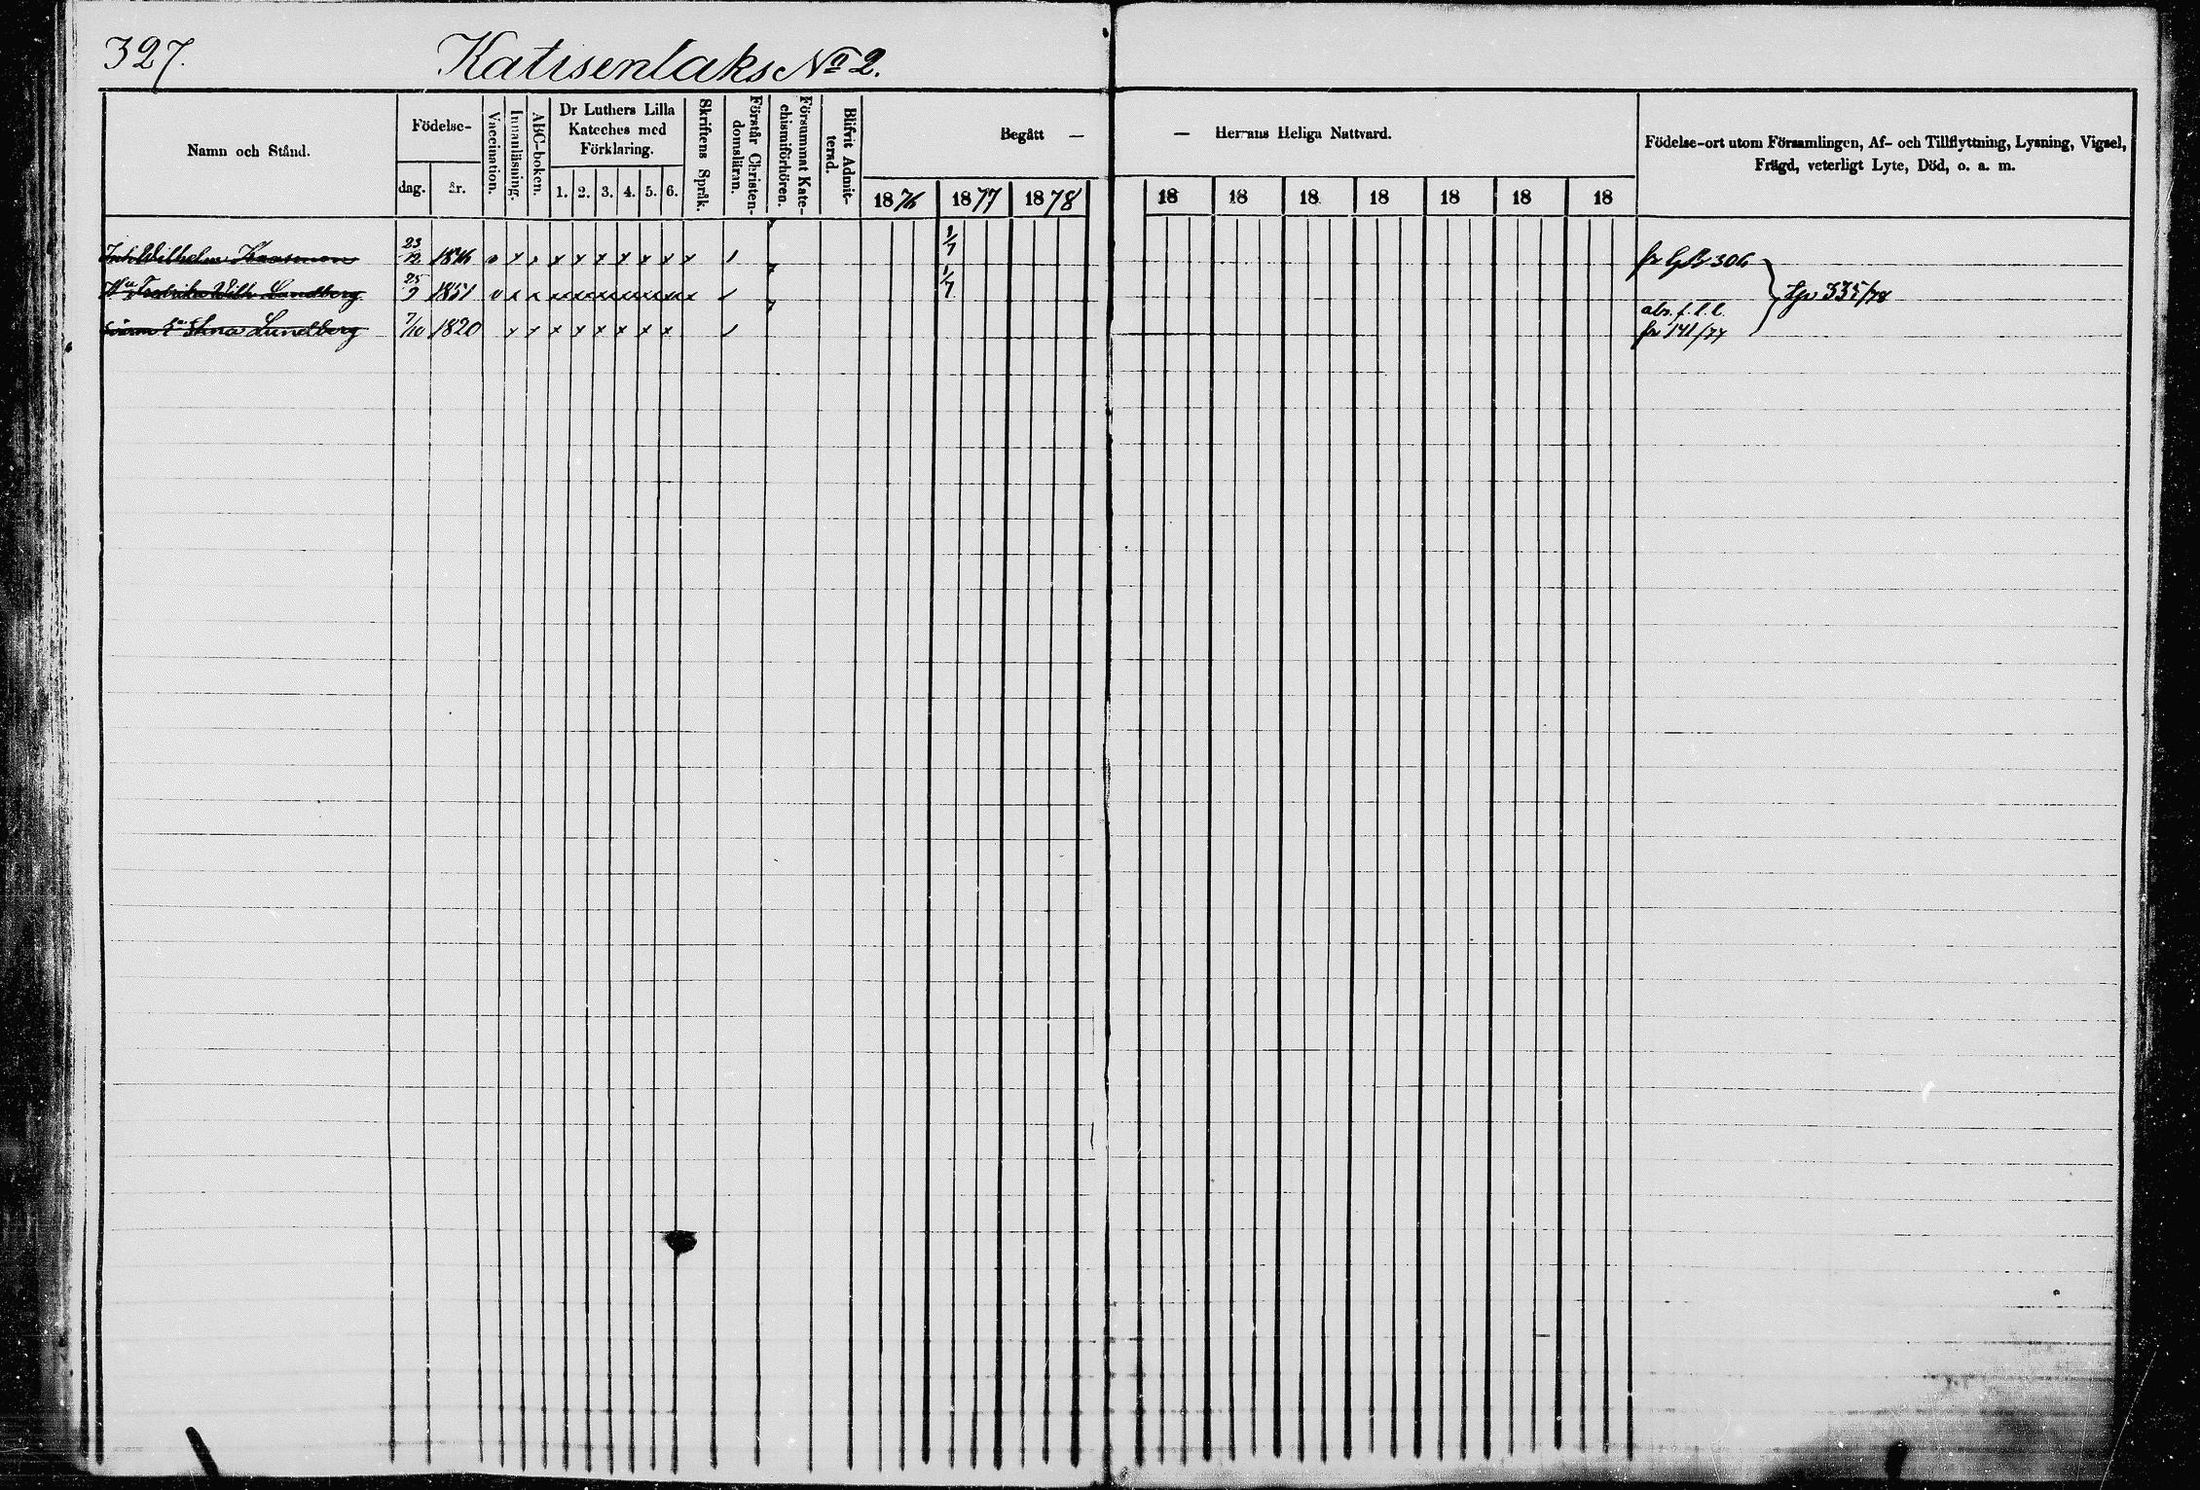 327. Katisenlaks No 2.
Namn och Stånd.
Födelse-
dag. år.
Vaccination.
Innanläsning.
ABC-boken.
Dr Luthers Lilla
Kateches med
Förklaring.
1. 2. 3. 4. 5. 6.
Skriftens Språk.
Förstår Christen-
domsläran.
Försummat Kate-
chismiförhören.
Blifvit Admit-
terad.
Begått — — Herrans Heliga Nattvard.
1876 1877 1878 18 18 18 18 18 18 18
Födelse-ort utom Församlingen, Af- och Tillflyttning, Lysning, Vigsel,
Frägd, veterligt Lyte, Död, o. a. m.
Wilhelm 23/12 1846 1/7 fr 306
Hu Fredrika Wilh. Lundberg 25/9 1851 1/7 335/78
Stina Lundberg 7/10 1820 abs. f. l. l.
fr 141/77